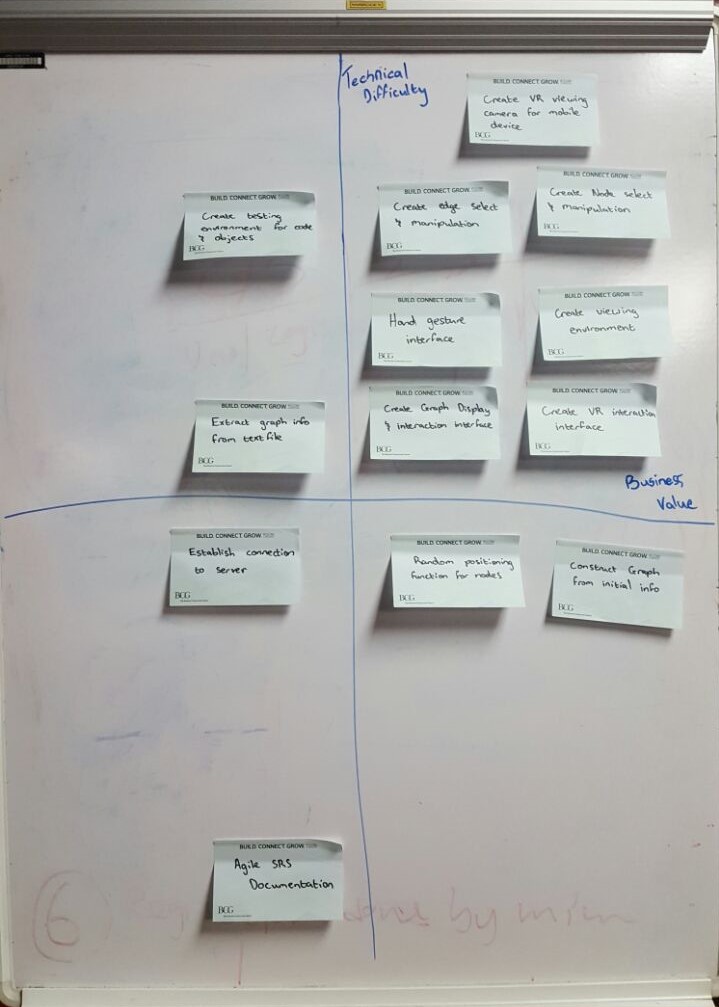 Technical
Difficulty
BUILD CONNECT GROW
Create VR viewing
camera for mobile
device
BCG
BUILD CONNECT GROW
Create testing
environment for code
& objects
BCG
BUILD CONNECT GROW
Create edge select
& manipulation
BCG
BUILD CONNECT GROW
Create Node select
& manipulation
BCG
BUILD CONNECT GROW
Hand gesture
interface
BCG
BUILD CONNECT GROW
Create viewing
environment
BCG
BUILD CONNECT GROW
Extract graph info
from text file
BCG
BUILD CONNECT GROW
Create Graph Display
& interaction interface
BCG
BUILD CONNECT GROW
Create VR interaction
interface
BCG
Business
Value
BUILD CONNECT GROW
Establish connection
to server
BCG
BUILD CONNECT GROW
Random positioning
function for nodes
BCG
BUILD CONNECT GROW
Construct Graph
from initial info
BCG
BUILD CONNECT GROW
Agile SRS
Documentation
BCG
6
by